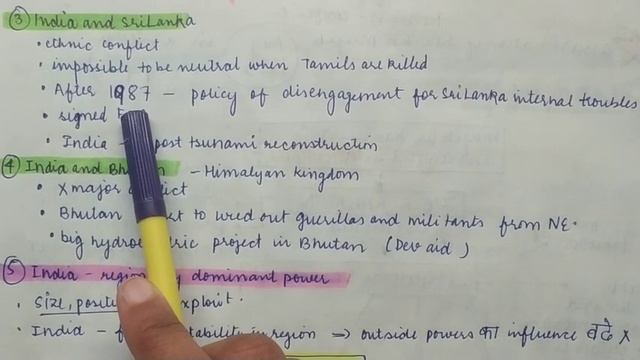 ③ India and SriLanka
• ethnic conflict
• impossible to be neutral when Tamils are killed
• After 1987 – policy of disengagement for SriLanka internal troubles
• signed
• India – post tsunami reconstruction
④ India and – Himalyan kingdom
• X major
• Bhutan to weed out guerillas and militants from NE.
• big project in Bhutan (Dev aid)
⑤ India – dominant power
• Size, exploit.
• India – in region ⇒ outside powers का influence X